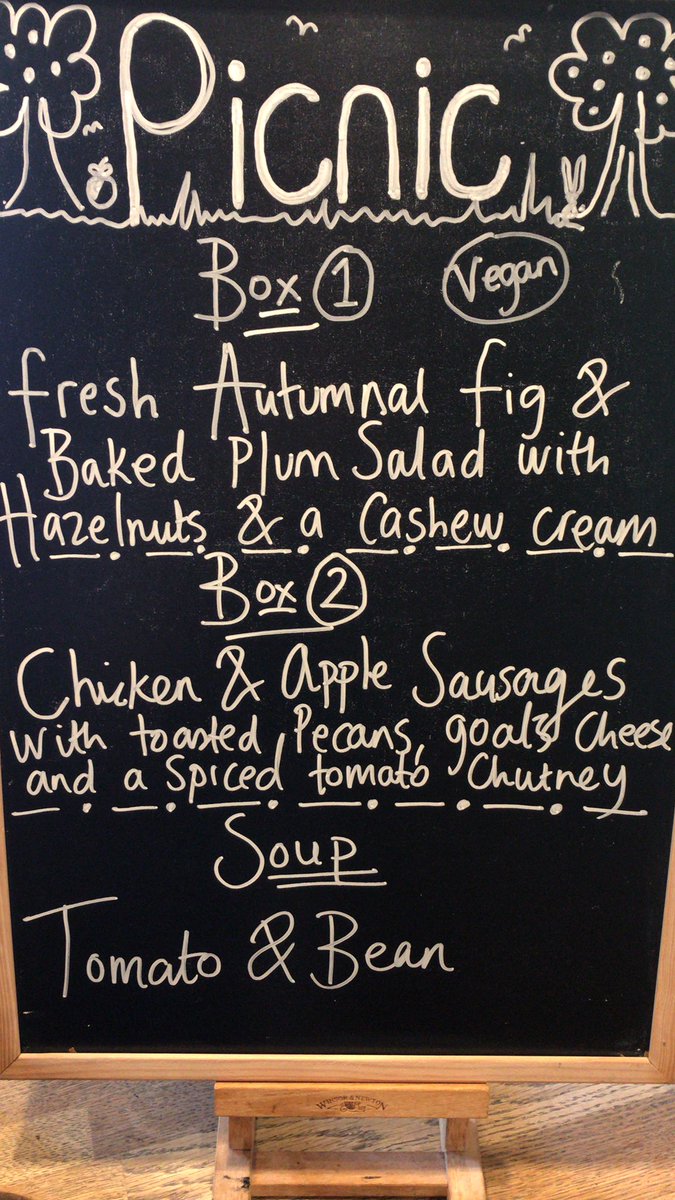 Picnic
Box 1 Vegan
fresh Autumnal fig &
Baked Plum Salad with
Hazelnuts & a Cashew cream
Box 2
Chicken & Apple Sausages
with toasted Pecans, goats cheese
and a spiced tomato Chutney
Soup
Tomato & Bean
WINSOR & NEWTON